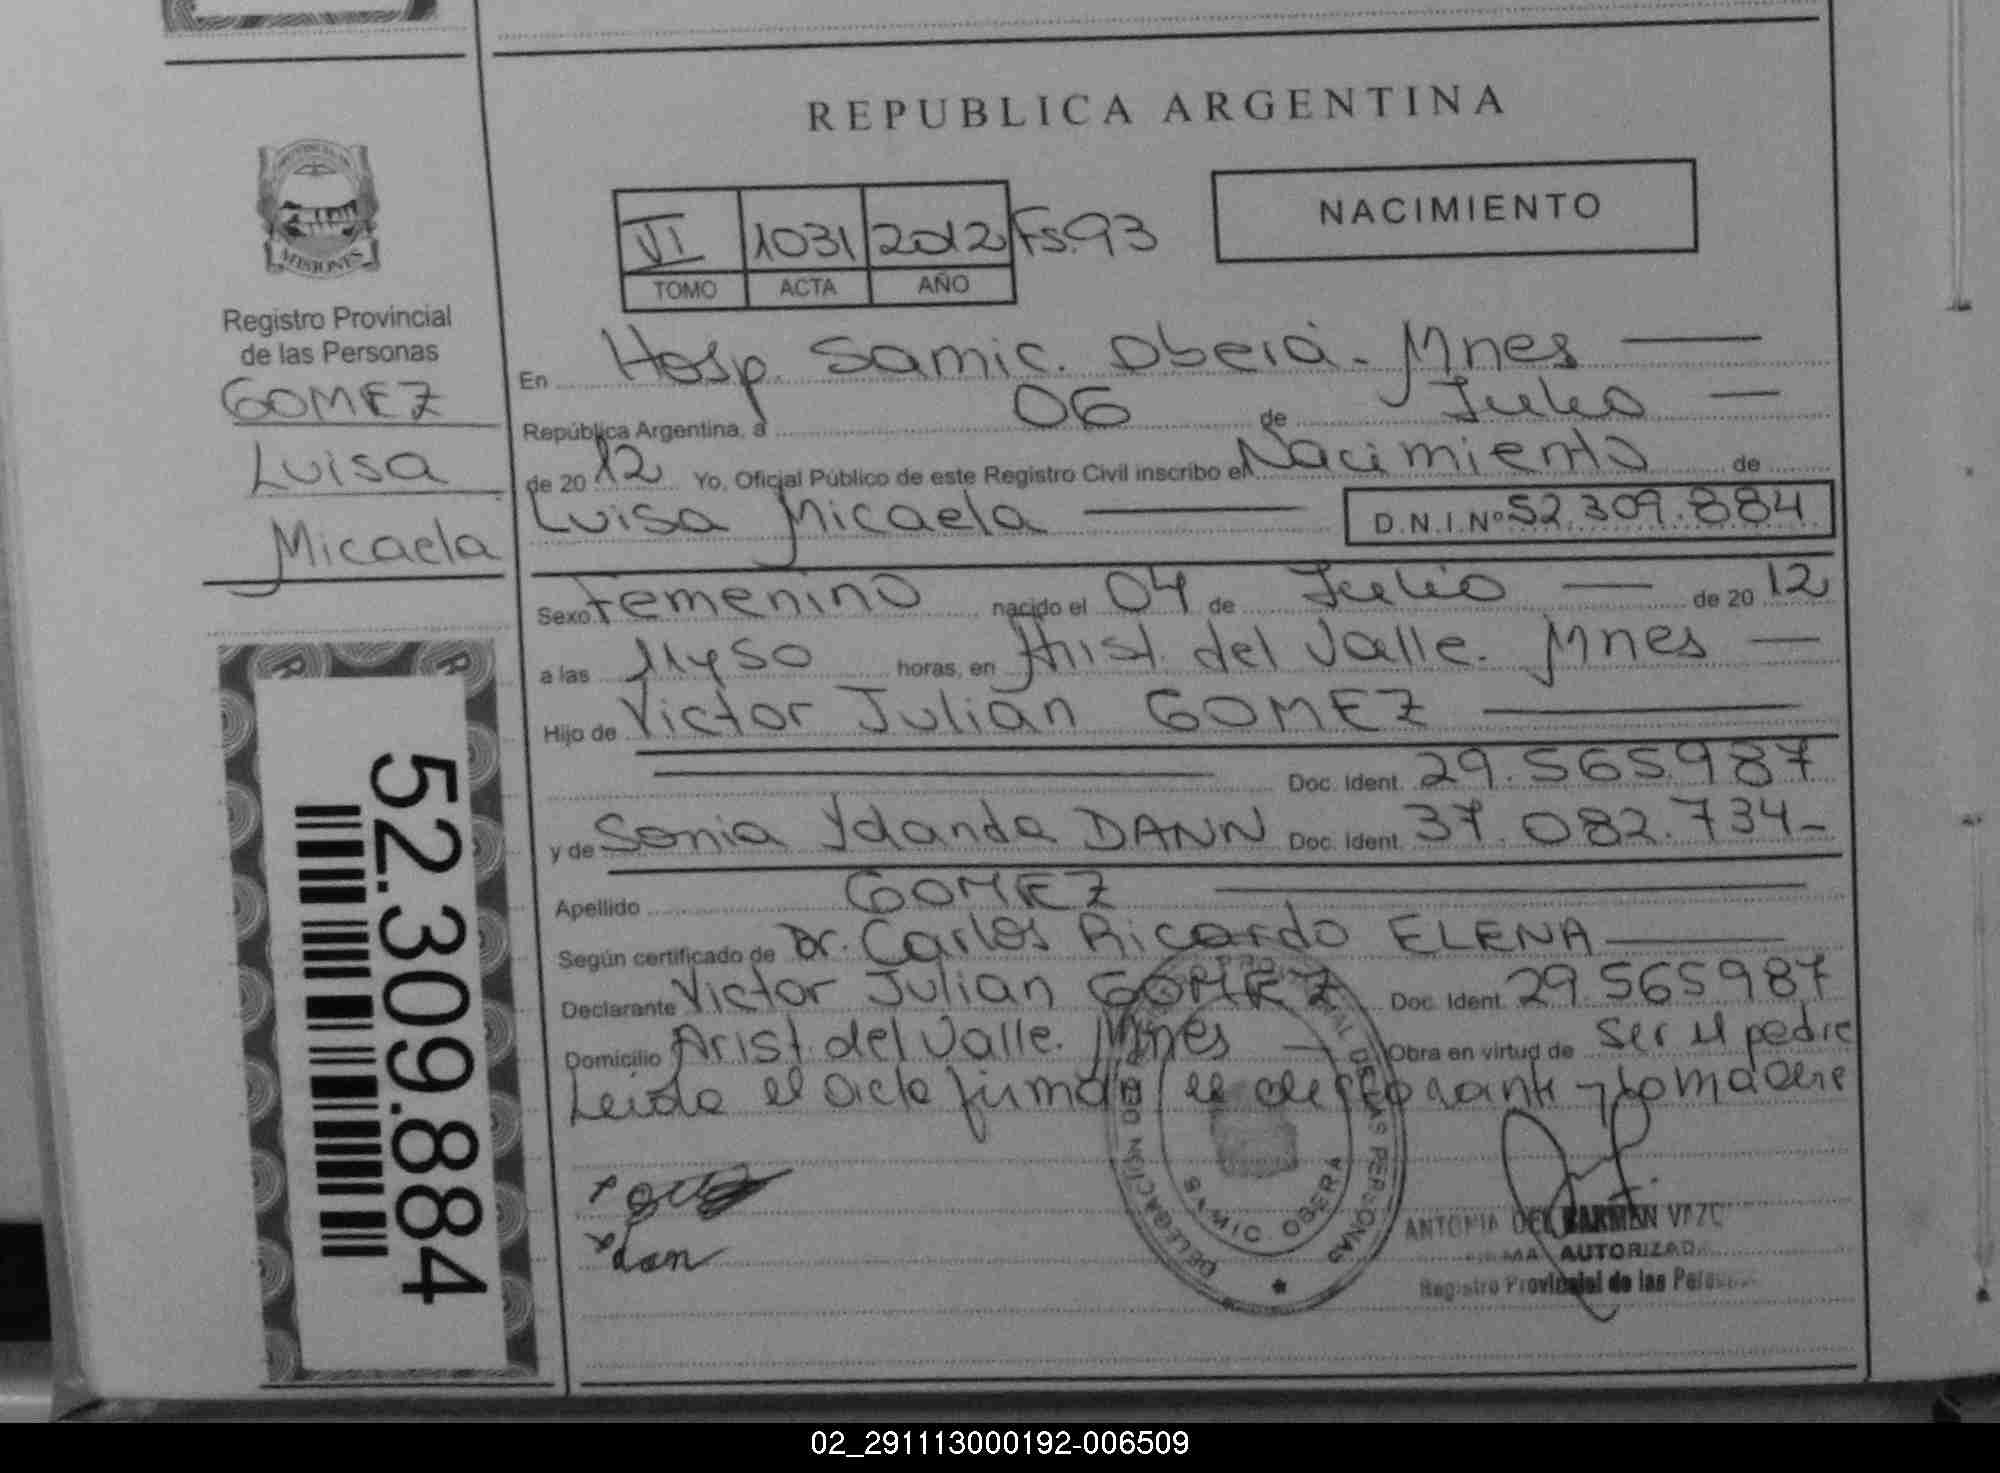 REPUBLICA ARGENTINA
MISIONES
Registro Provincial
de las Personas
GOMEZ
Luisa
Micaela
52.309.884
VI 1031 2012 Fs.93
TOMO ACTA AÑO
NACIMIENTO
En Hosp. Samic. Oberá - Mnes
República Argentina, a 06 de Julio
de 2012 Yo, Oficial Público de este Registro Civil inscribo el Nacimiento de
Luisa Micaela D.N.I.Nº 52.309.884
Sexo Femenino nacido el 04 de Julio de 2012
a las 11y50 horas, en Arist. del Valle. Mnes
Hijo de Victor Julián GOMEZ
Doc. Ident. 29.565.987
y de Sonia Yolanda DANN Doc. Ident. 37.082.734-
Apellido GOMEZ
Según certificado de Dr. Carlos Ricardo ELENA
Declarante Victor Julian GOMEZ Doc. Ident. 29.565987
Domicilio Arist. del Valle. Mnes Obra en virtud de ser el padre
Leida el acta firma el declarante y la madre
DELEGACION REGISTRO PROVINCIAL DE LAS PERSONAS
SAMIC. OBERA
ANTONIA DEL CARMEN
AUTORIZADA
Registro Provincial de las Personas
02_291113000192-006509